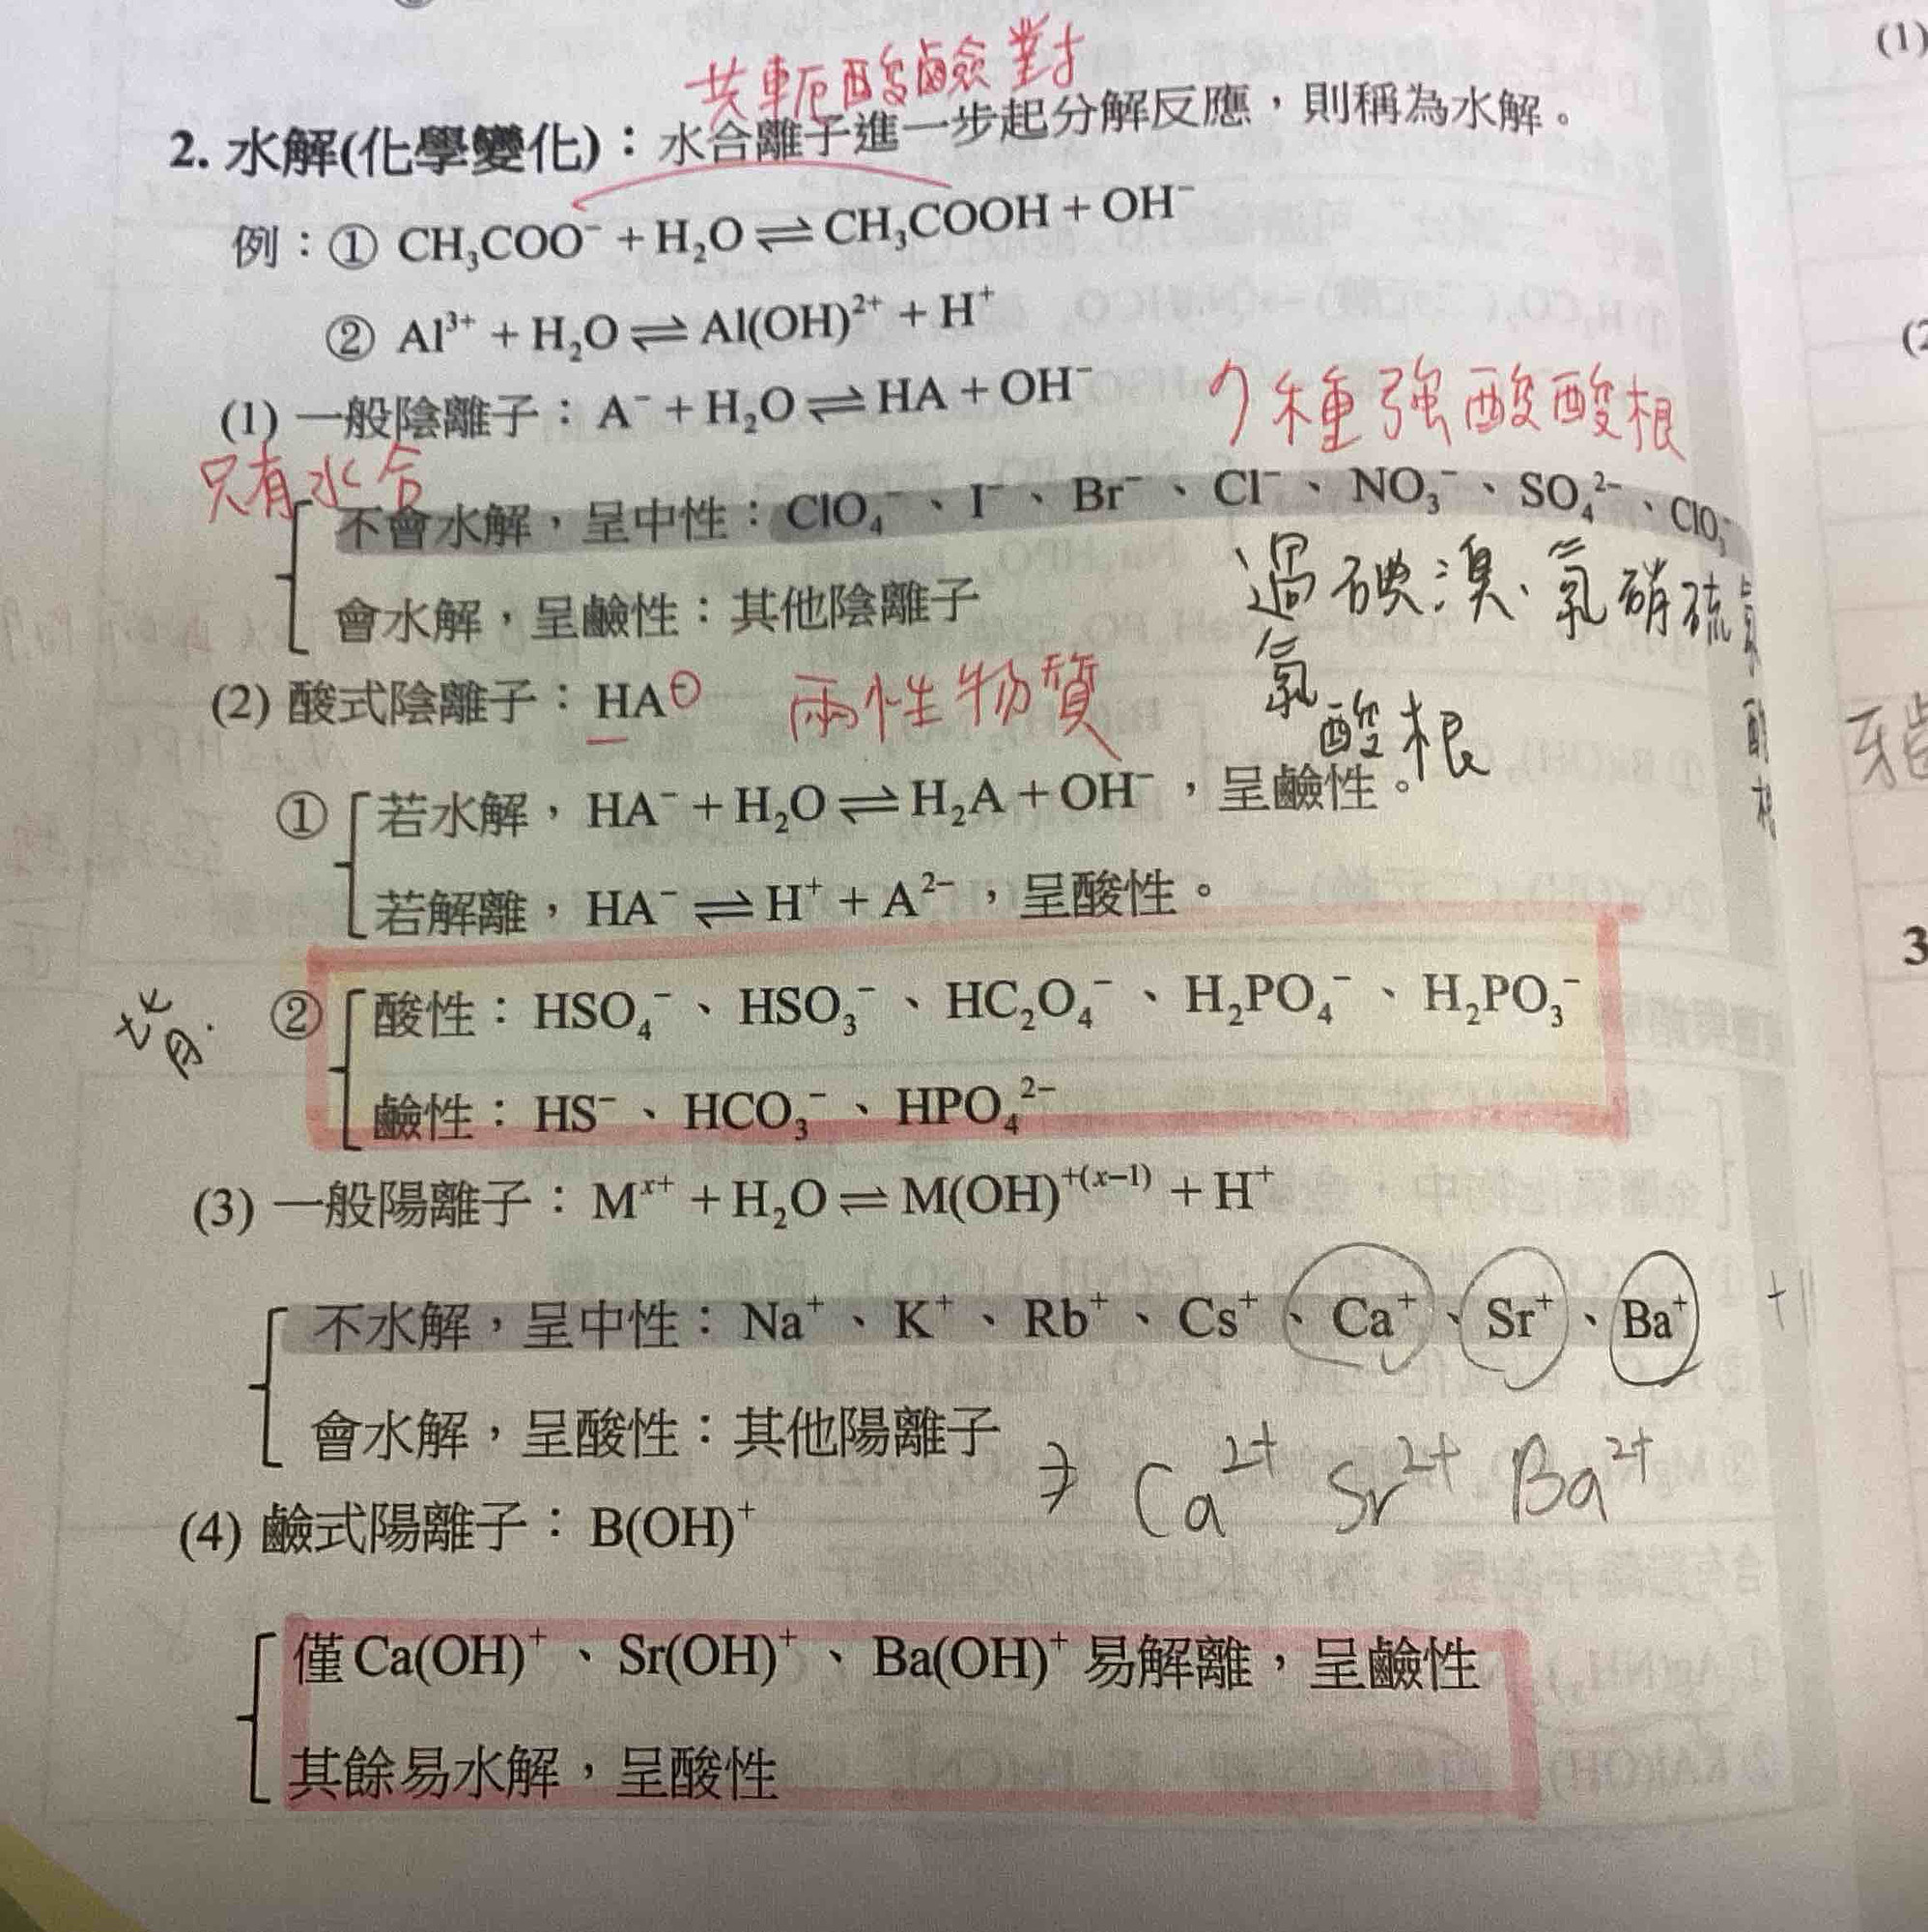 共軛酸鹼對
2. 水解(化學變化)：水合離子進一步起分解反應，則稱為水解。
例：① CH₃COO⁻ + H₂O ⇌ CH₃COOH + OH⁻
② Al³⁺ + H₂O ⇌ Al(OH)²⁺ + H⁺
(1) 一般陰離子：A⁻ + H₂O ⇌ HA + OH⁻
種強酸酸根
只有水合
不會水解，呈中性：ClO₄⁻、I⁻、Br⁻、Cl⁻、NO₃⁻、SO₄²⁻、ClO₃⁻
過碘溴氯硝硫氯酸根
會水解，呈鹼性：其他陰離子
氯酸根
(2) 酸式陰離子：HA⊖ 兩性物質
① 若水解，HA⁻ + H₂O ⇌ H₂A + OH⁻，呈鹼性。
若解離，HA⁻ ⇌ H⁺ + A²⁻，呈酸性。
背.
② 酸性：HSO₄⁻、HSO₃⁻、HC₂O₄⁻、H₂PO₄⁻、H₂PO₃⁻
鹼性：HS⁻、HCO₃⁻、HPO₄²⁻
(3) 一般陽離子：Mˣ⁺ + H₂O ⇌ M(OH)⁺⁽ˣ⁻¹⁾ + H⁺
不水解，呈中性：Na⁺、K⁺、Rb⁺、Cs⁺、Ca⁺、Sr⁺、Ba⁺
會水解，呈酸性：其他陽離子
Ca²⁺ Sr²⁺ Ba²⁺
(4) 鹼式陽離子：B(OH)⁺
僅Ca(OH)⁺、Sr(OH)⁺、Ba(OH)⁺易解離，呈鹼性
其餘易水解，呈酸性
(1)
3